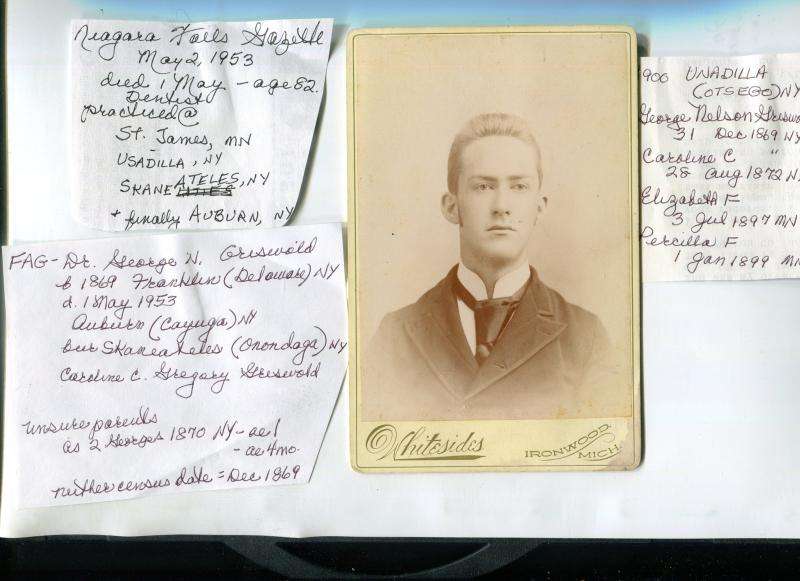 Niagara Falls Gazette
May 2, 1953
died 1 May - age 82.
Dentist
practiced @
St. James, MN
USADILLA, NY
SKANEATELES, NY
+ finally AUBURN, NY
FAG - Dr. George N. Griswold
b 1869 Franklin (Delaware) NY
d. 1 May 1953
Auburn (Cayuga) NY
bur Skaneateles (Onondaga) NY
Caroline C. Gregory Griswold
unsure parents
as 2 Georges 1870 NY - ae 1
- ae 4 mo.
neither census date = Dec 1869
Whitesides
IRONWOOD,
MICH
900 UNADILLA
(OTSEGO) NY
George Nelson Griswo
31 Dec 1869 NY
Caroline C "
28 Aug 1872 N
Elizabeth F
3 Jul 1897 MN
Percilla F
1 Jan 1899 MN